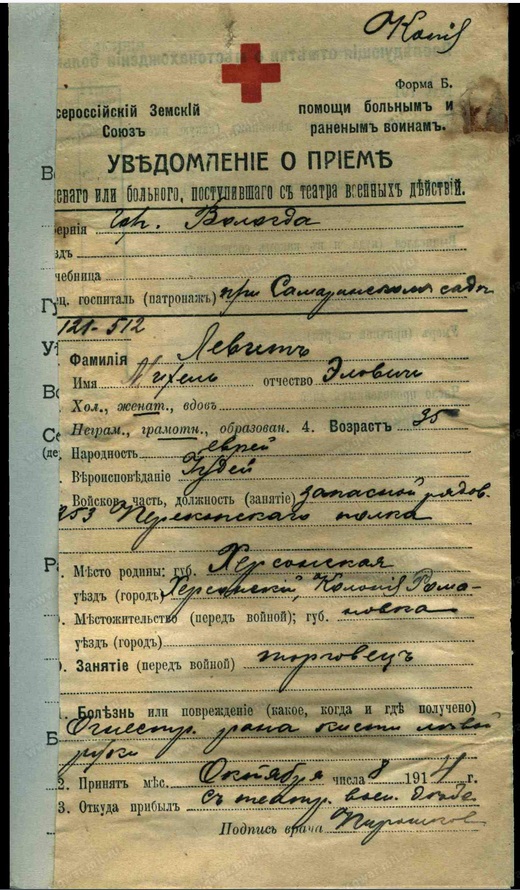 Копія
Форма Б.
сероссійскій Земскій помощи больнымъ и
Союзъ раненымъ воинамъ.
УВѢДОМЛЕНІЕ О ПРІЕМѢ
енаго или больного, поступившаго съ театра военныхъ дѣйствій.
ернія гор. Вологда
здъ
чебница
ц. госпиталь (патронажъ) при Самаринскомъ садѣ
121-512
Фамилія Левитъ
Имя отчество Эловичъ
Хол., женат., вдовъ
Неграм., грамотн., образован. 4. Возрастъ 35
Народность еврей
Вѣроисповѣданіе Іудей
Войсков. часть, должность (занятіе) запасной рядов.
253 Перекопскаго полка
Мѣсто родины: губ. Херсонская
уѣздъ (городъ) Херсонскій, Колонія Рома-
Мѣстожительство (передъ войной); губ. новка
уѣздъ (городъ)
Занятіе (передъ войной) торговецъ
1. Болѣзнь или поврежденіе (какое, когда и гдѣ получено)
Огнестр. рана кисти лѣвой
руки
2. Принятъ мѣс. Октября числа 8 1914 г.
3. Откуда прибылъ съ театр. воен.
Подпись врача